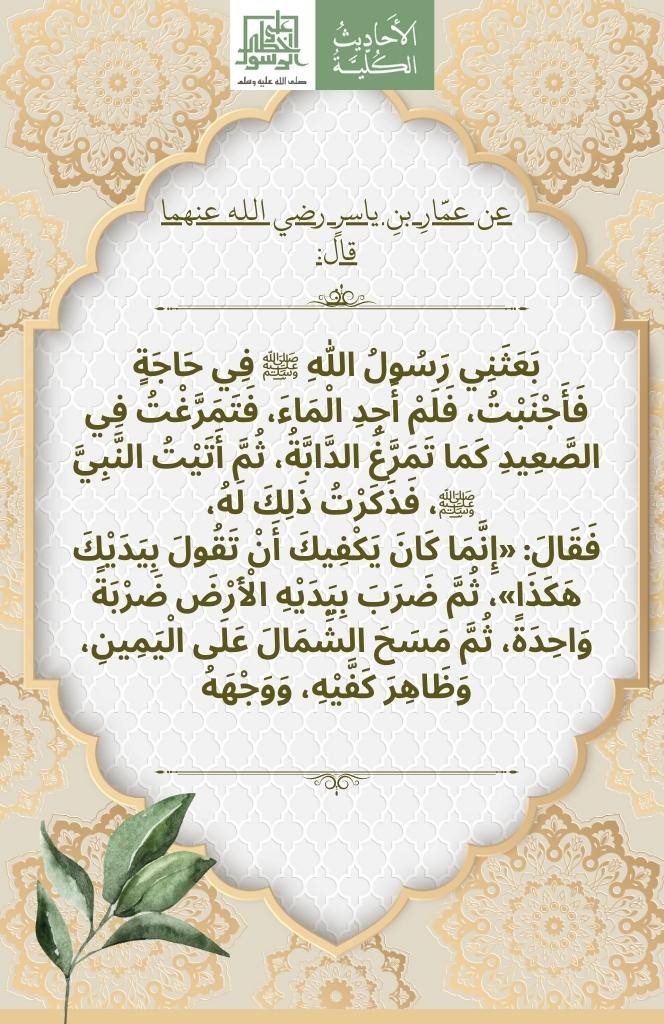 الأَحَادِيثُ
الكُلِّيَّةُ
على خطى الرسول
صلى الله عليه وسلم
عن عمّارِ بنِ ياسرٍ رضي الله عنهما
قالَ:
بَعَثَنِي رَسُولُ اللَّهِ ﷺ فِي حَاجَةٍ
فَأَجْنَبْتُ، فَلَمْ أَجِدِ الْمَاءَ، فَتَمَرَّغْتُ فِي
الصَّعِيدِ كَمَا تَمَرَّغُ الدَّابَّةُ، ثُمَّ أَتَيْتُ النَّبِيَّ
ﷺ، فَذَكَرْتُ ذَلِكَ لَهُ،
فَقَالَ: «إِنَّمَا كَانَ يَكْفِيكَ أَنْ تَقُولَ بِيَدَيْكَ
هَكَذَا»، ثُمَّ ضَرَبَ بِيَدَيْهِ الْأَرْضَ ضَرْبَةً
وَاحِدَةً، ثُمَّ مَسَحَ الشِّمَالَ عَلَى الْيَمِينِ،
وَظَاهِرَ كَفَّيْهِ، وَوَجْهَهُ